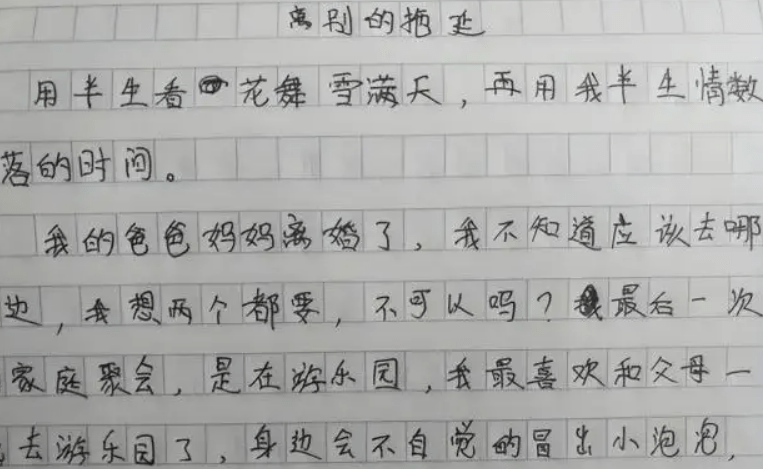 离别的拖延
用半生看花舞雪满天，再用我半生情数
落的时间。
我的爸爸妈妈离婚了，我不知道应该去哪
边，我想两个都要，不可以吗？最后一次
家庭聚会，是在游乐园，我最喜欢和父母一
去游乐园了，身边会不自觉的冒出小泡泡，